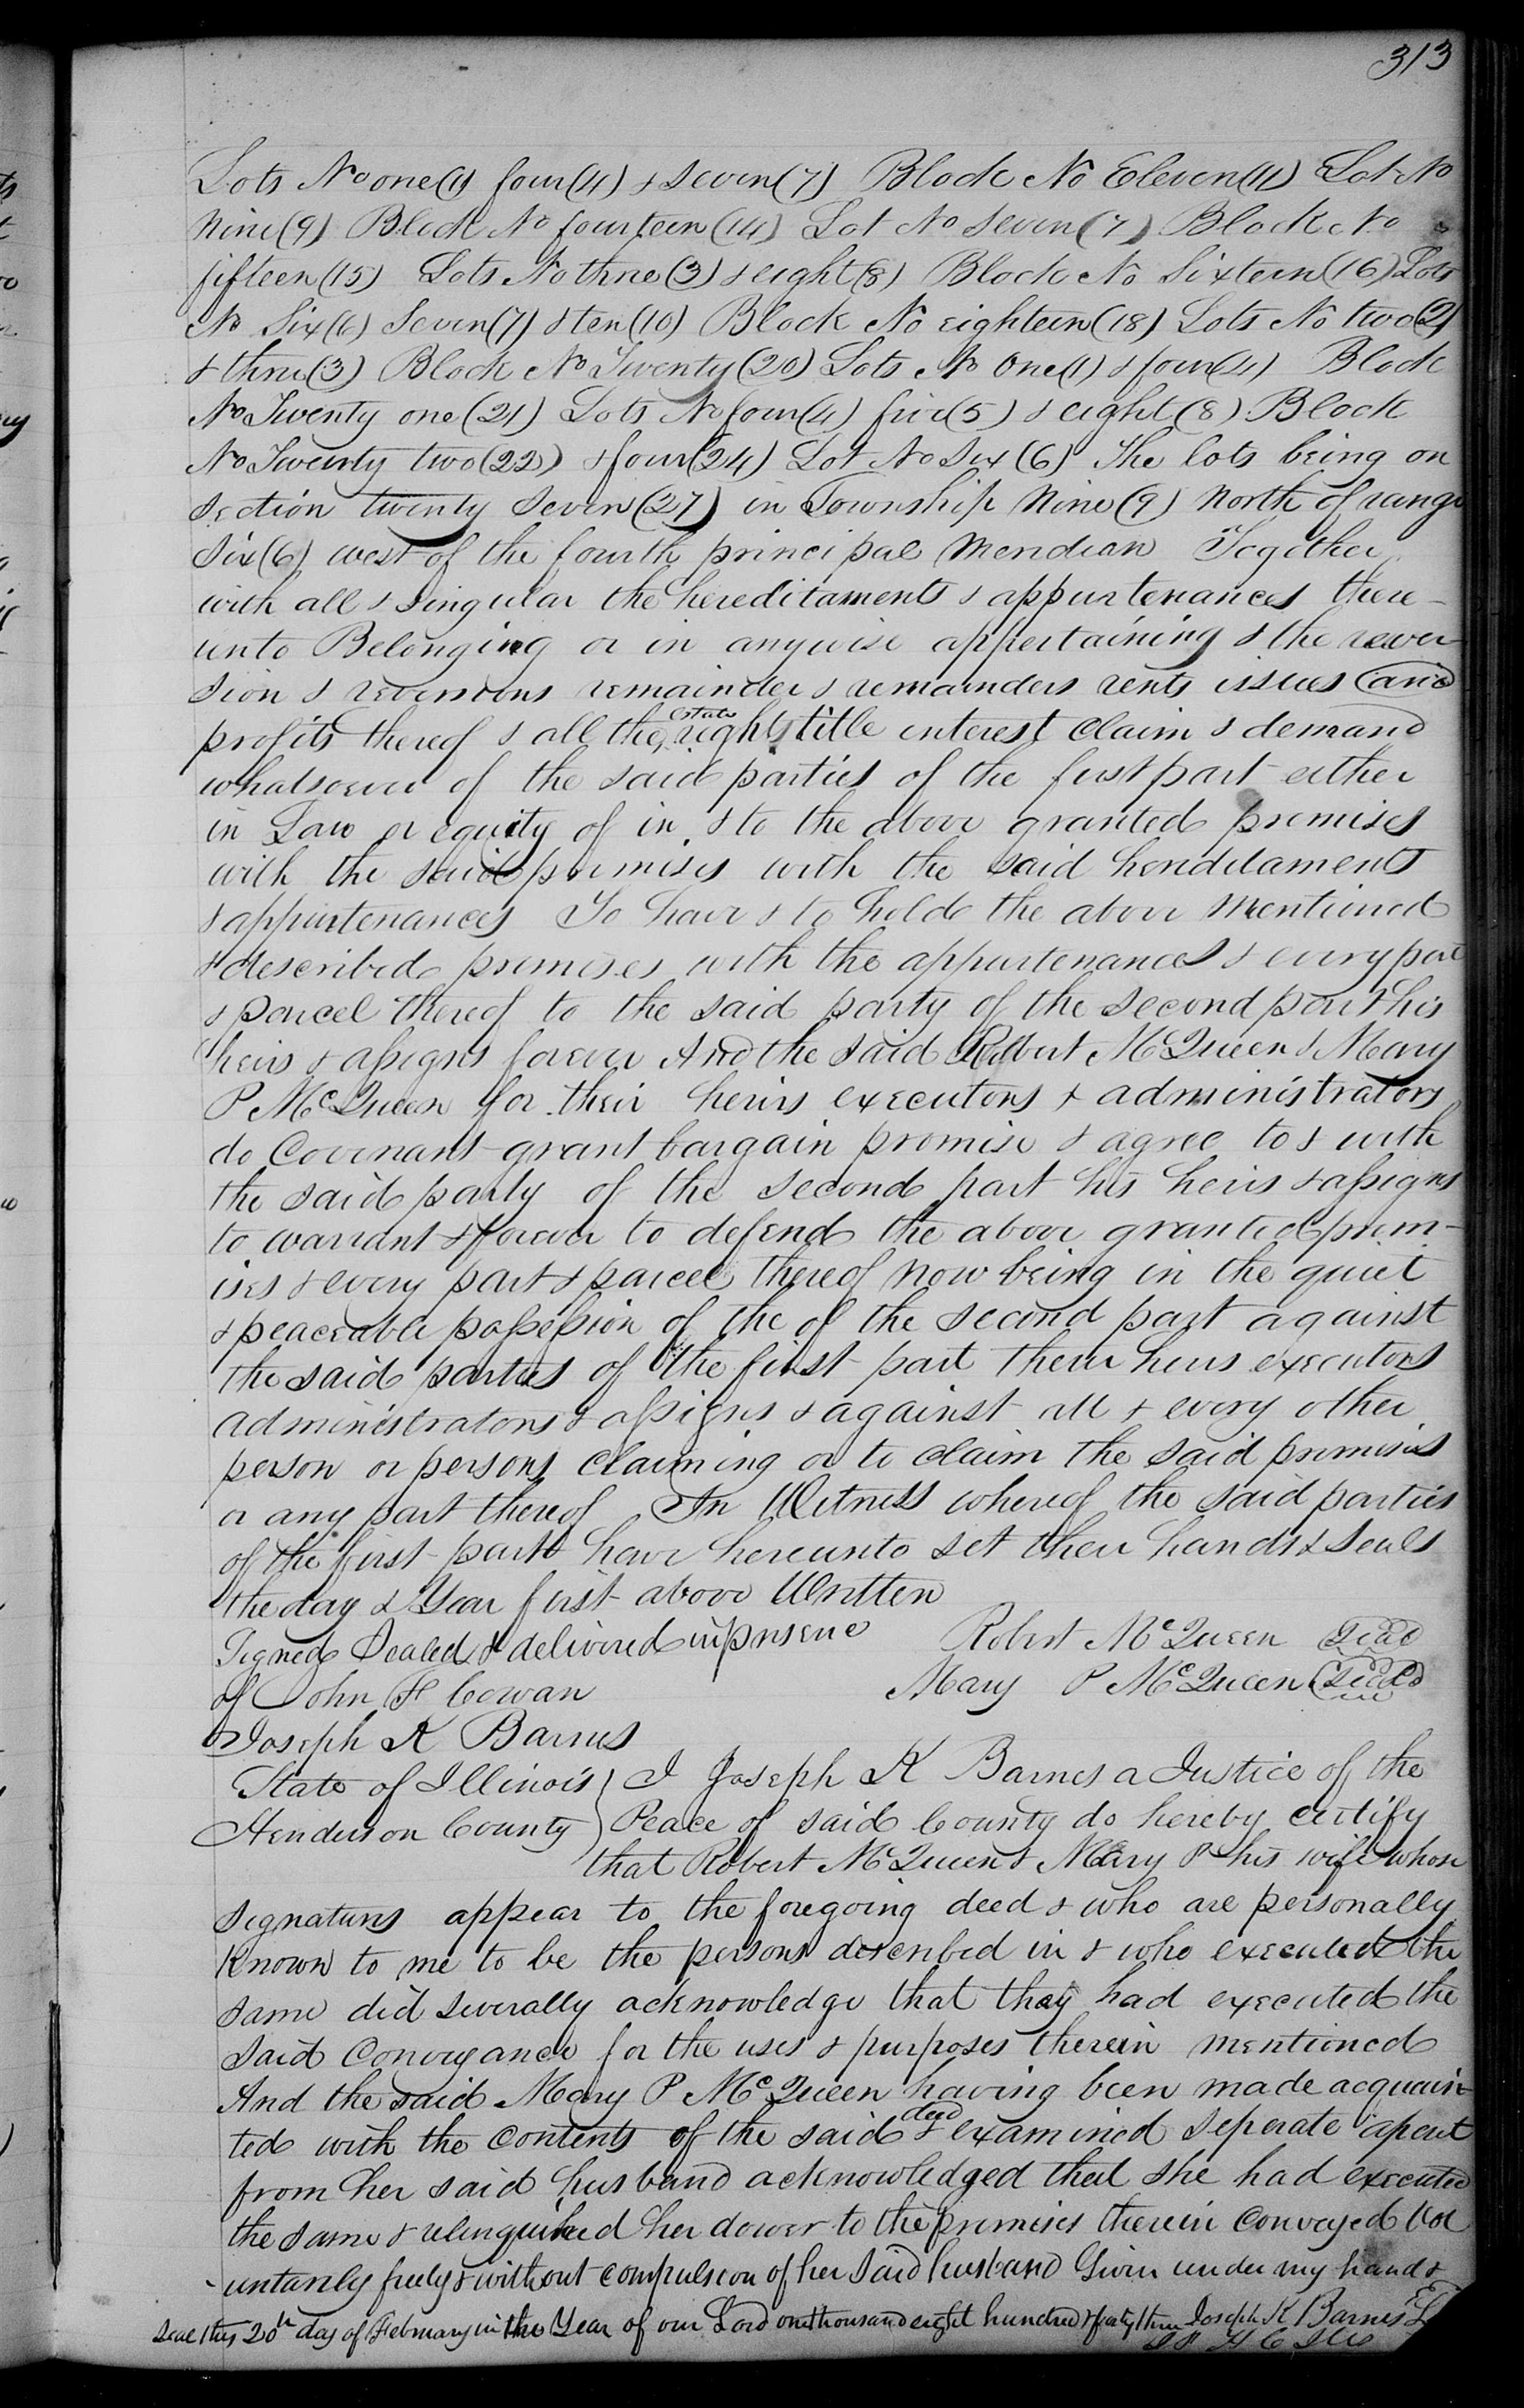 313
Lots No one(1) four(4) & Seven(7) Block No Eleven(11) Lot No
Nine(9) Block No fourteen(14) Lot No Seven(7) Block No
fifteen(15) Lots No three(3) & eight(8) Block No Sixteen(16) Lots
No Six(6) Seven(7) & ten(10) Block No eighteen(18) Lots No two(2)
& three(3) Block No Twenty(20) Lots No One(1) & four(4) Block
No Twenty one(21) Lots No four(4) five(5) & eight(8) Block
No Twenty two(22) & four(24) Lot No Six(6) The lots being on
Section twenty Seven(27) in Township Nine(9) North of range
Six(6) west of the fourth principal Meridian Together
with all & singular the hereditaments & appurtenances there-
unto Belonging or in anywise appertaining & the rever-
sion & reversions remainder & remainders rents issues and
profits thereof & all the estate rights title interest claim & demand
whatsoever of the said parties of the first part either
in Law or equity of in & to the above granted premises
with the said premises with the said hereditaments
& appurtenances To have & to hold the above Mentioned
& described premises with the appurtenances & every part
& parcel thereof to the said party of the second part his
heirs & assigns forever And the said Robert McQueen & Mary
P McQueen for their heirs executors & administrators
do Covenant grant bargain promise & agree to & with
the said party of the second part his heirs & assigns
to warrant & forever to defend the above granted prem-
ises & every part & parcel thereof now being in the quiet
& peaceable possession of the of the second part against
the said parties of the first part their heirs executors
administrators & assigns & against all & every other
person or persons claiming or to claim the said premises
or any part thereof In Witness whereof the said parties
of the first part have hereunto set their hands & seals
the day & Year first above Written
Signed Sealed & delivered in presence Robert McQueen Seal
of John F Cowan Mary P McQueen Seal
Joseph K Barnes
State of Illinois } I Joseph K Barnes a Justice of the
Henderson County } Peace of said County do hereby certify
that Robert McQueen & Mary P his wife whose
signatures appear to the foregoing deed & who are personally
Known to me to be the persons described in & who executed the
same did severally acknowledge that they had executed the
said Conveyance for the uses & purposes therein mentioned
And the said Mary P McQueen having been made acquain-
ted with the contents of the said deed & examined seperate apart
from her said husband acknowledged that she had executed
the same & relinquished her dower to the premises therein Conveyed Vol
untarily freely & without compulsion of her said husband Given under my hand &
Seal this 20th day of February in the Year of our Lord one thousand eight hundred & forty three Joseph K Barnes